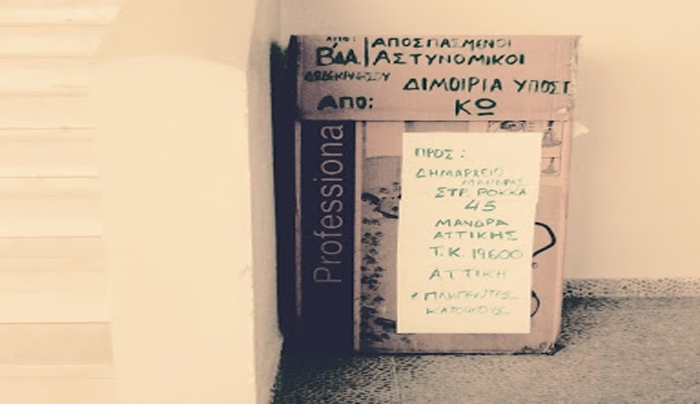 ΑΠΟ: ΑΠΟΣΠΑΣΜΕΝΟΙ
Β'Δ.Α. ΑΣΤΥΝΟΜΙΚΟΙ
ΔΩΔΕΚΑΝΗΣΟΥ ΔΙΜΟΙΡΙΑ ΥΠΟΣΤ
ΑΠΟ: ΚΩ
Professional
ΠΡΟΣ:
ΔΗΜΑΡΧΕΙΟ
ΜΑΝΔΡΑΣ
ΣΤΡ. ΡΟΚΚΑ
45
ΜΑΝΔΡΑ
ΑΤΤΙΚΗΣ
Τ.Κ. 19600
ΑΤΤΙΚΗ
ΠΛΗΓΕΝΤΕΣ
ΚΑΤΟΙΚΟΥΣ